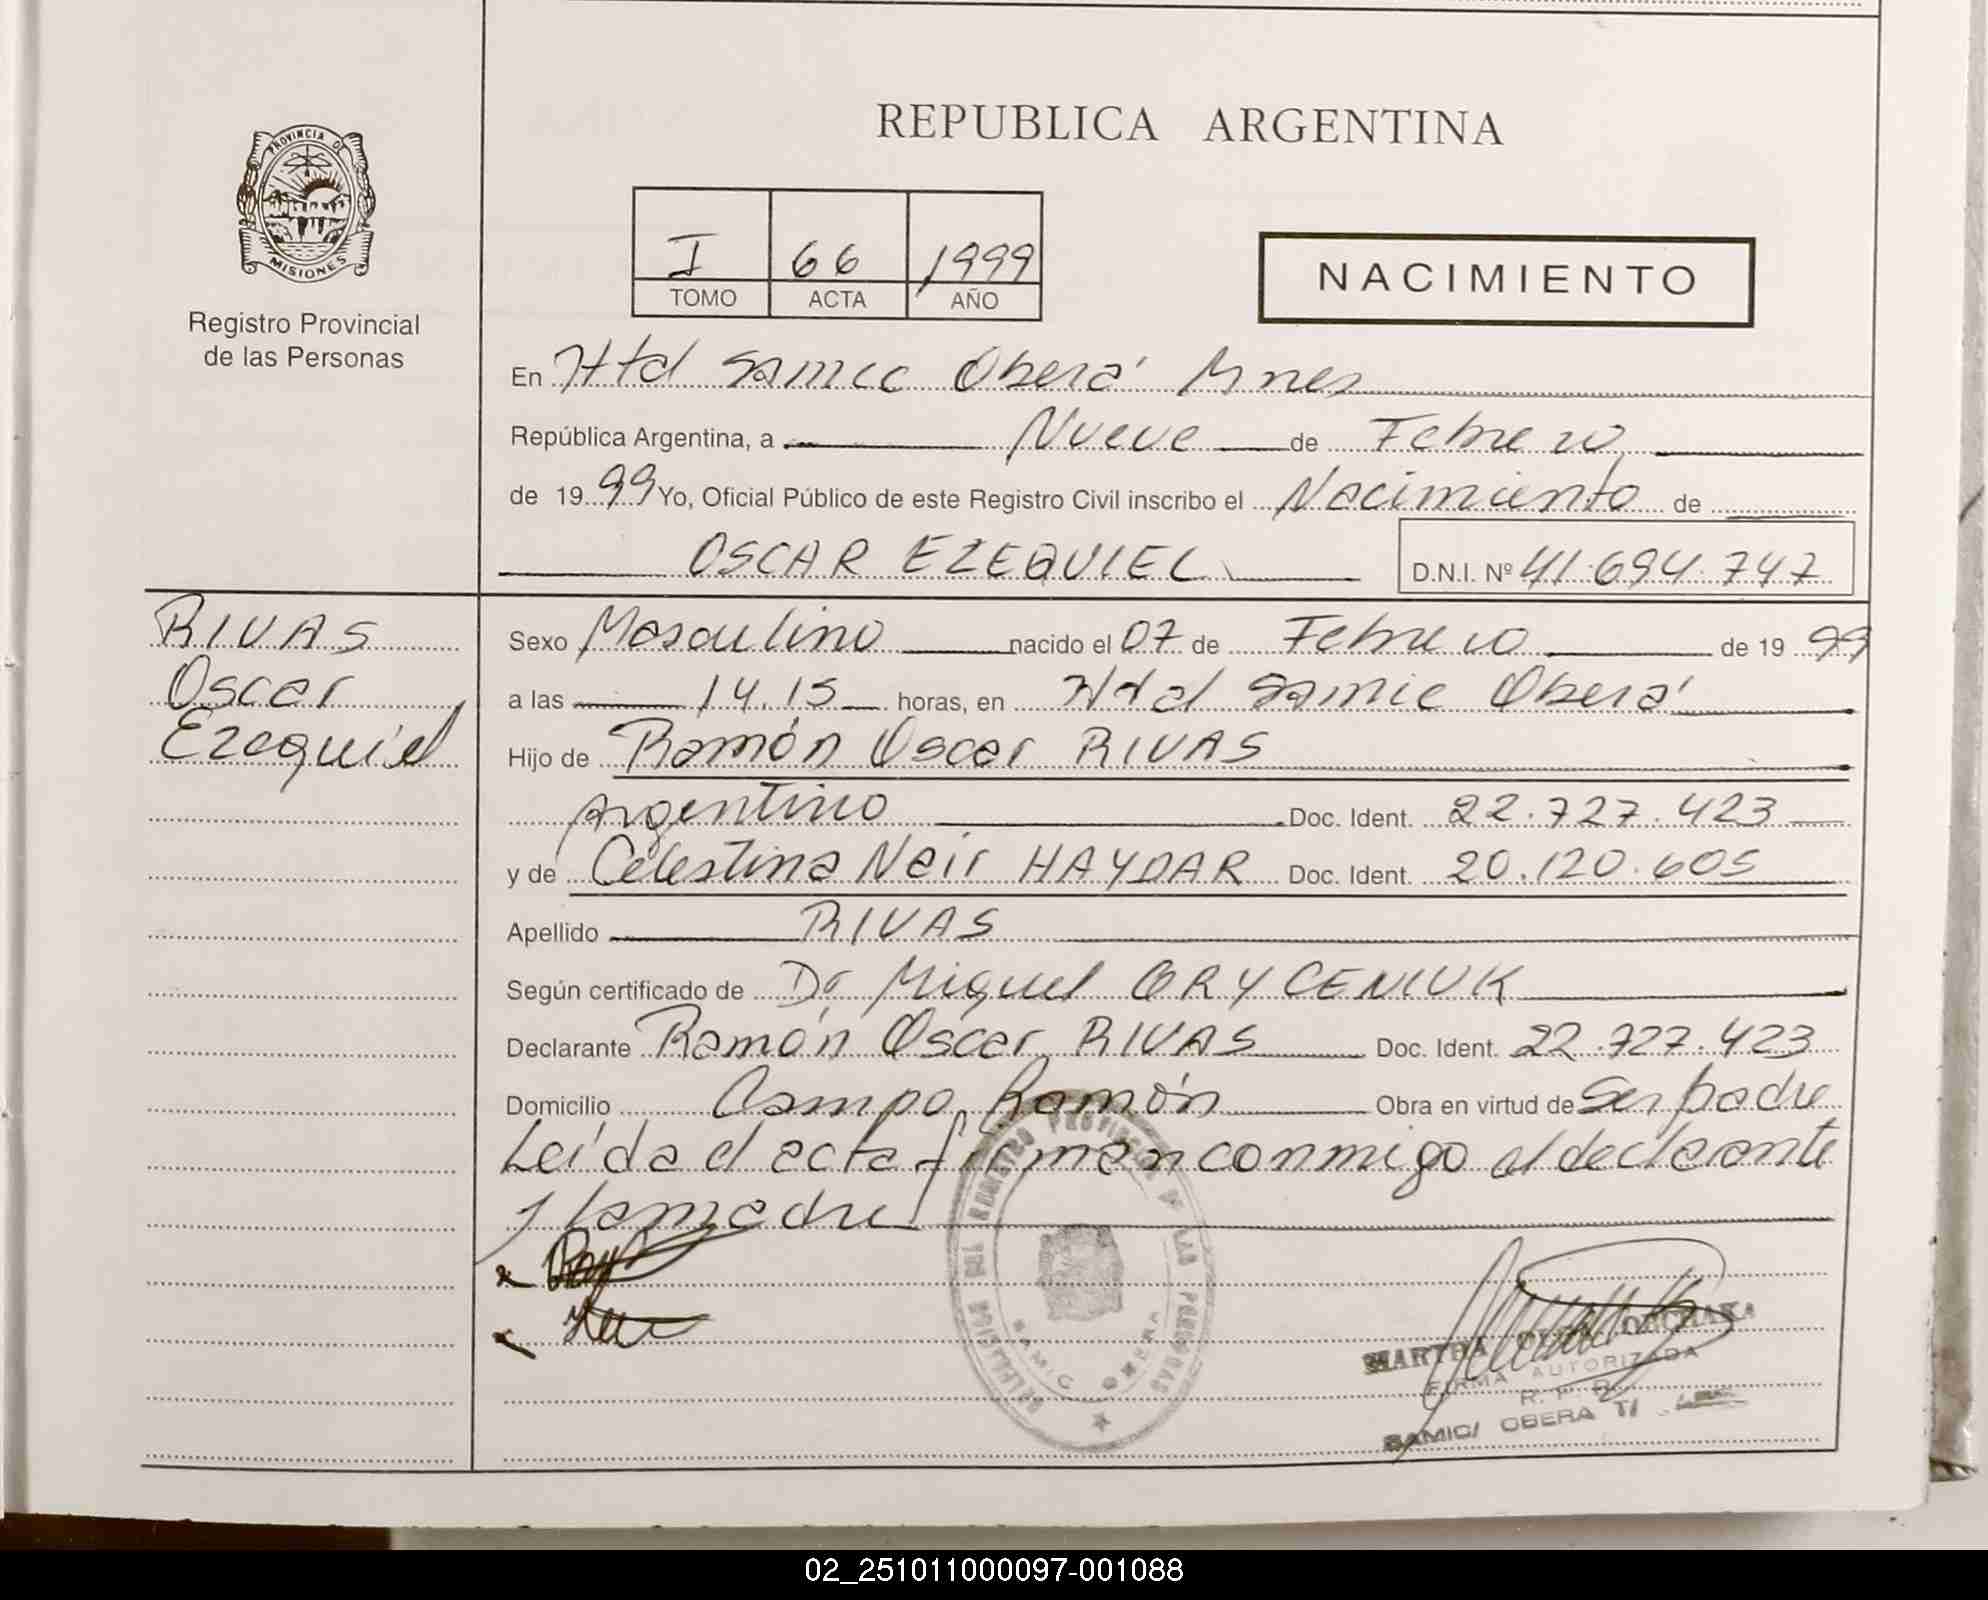 REPUBLICA ARGENTINA
PROVINCIA DE
MISIONES
Registro Provincial
de las Personas
I 66 1999
TOMO ACTA AÑO
NACIMIENTO
En Htal Samic Oberá Mnes
República Argentina, a Nueve de Febrero
de 1999 Yo, Oficial Público de este Registro Civil inscribo el Nacimiento de
OSCAR EZEQUIEL D.N.I. Nº 41.694.747
RIVAS
Oscar
Ezequiel
Sexo Masculino nacido el 07 de Febrero de 1999
a las 14.15 horas, en Htal Samic Oberá
Hijo de Ramón Oscar RIVAS
Argentino Doc. Ident. 22.727.423
y de Celestina Neir HAYDAR Doc. Ident. 20.120.605
Apellido RIVAS
Según certificado de Dr Miguel GRYCENIUK
Declarante Ramón Oscar RIVAS Doc. Ident. 22.727.423
Domicilio Campo Ramón Obra en virtud de Ser padre
Leída el acta firman conmigo el declarante
y la madre
DELEGACION DEL REGISTRO PROVINCIAL DE LAS PERSONAS
SAMIC OBERA
MARTHA
FIRMA AUTORIZADA
R. P. P.
SAMIC/ OBERA
02_251011000097-001088